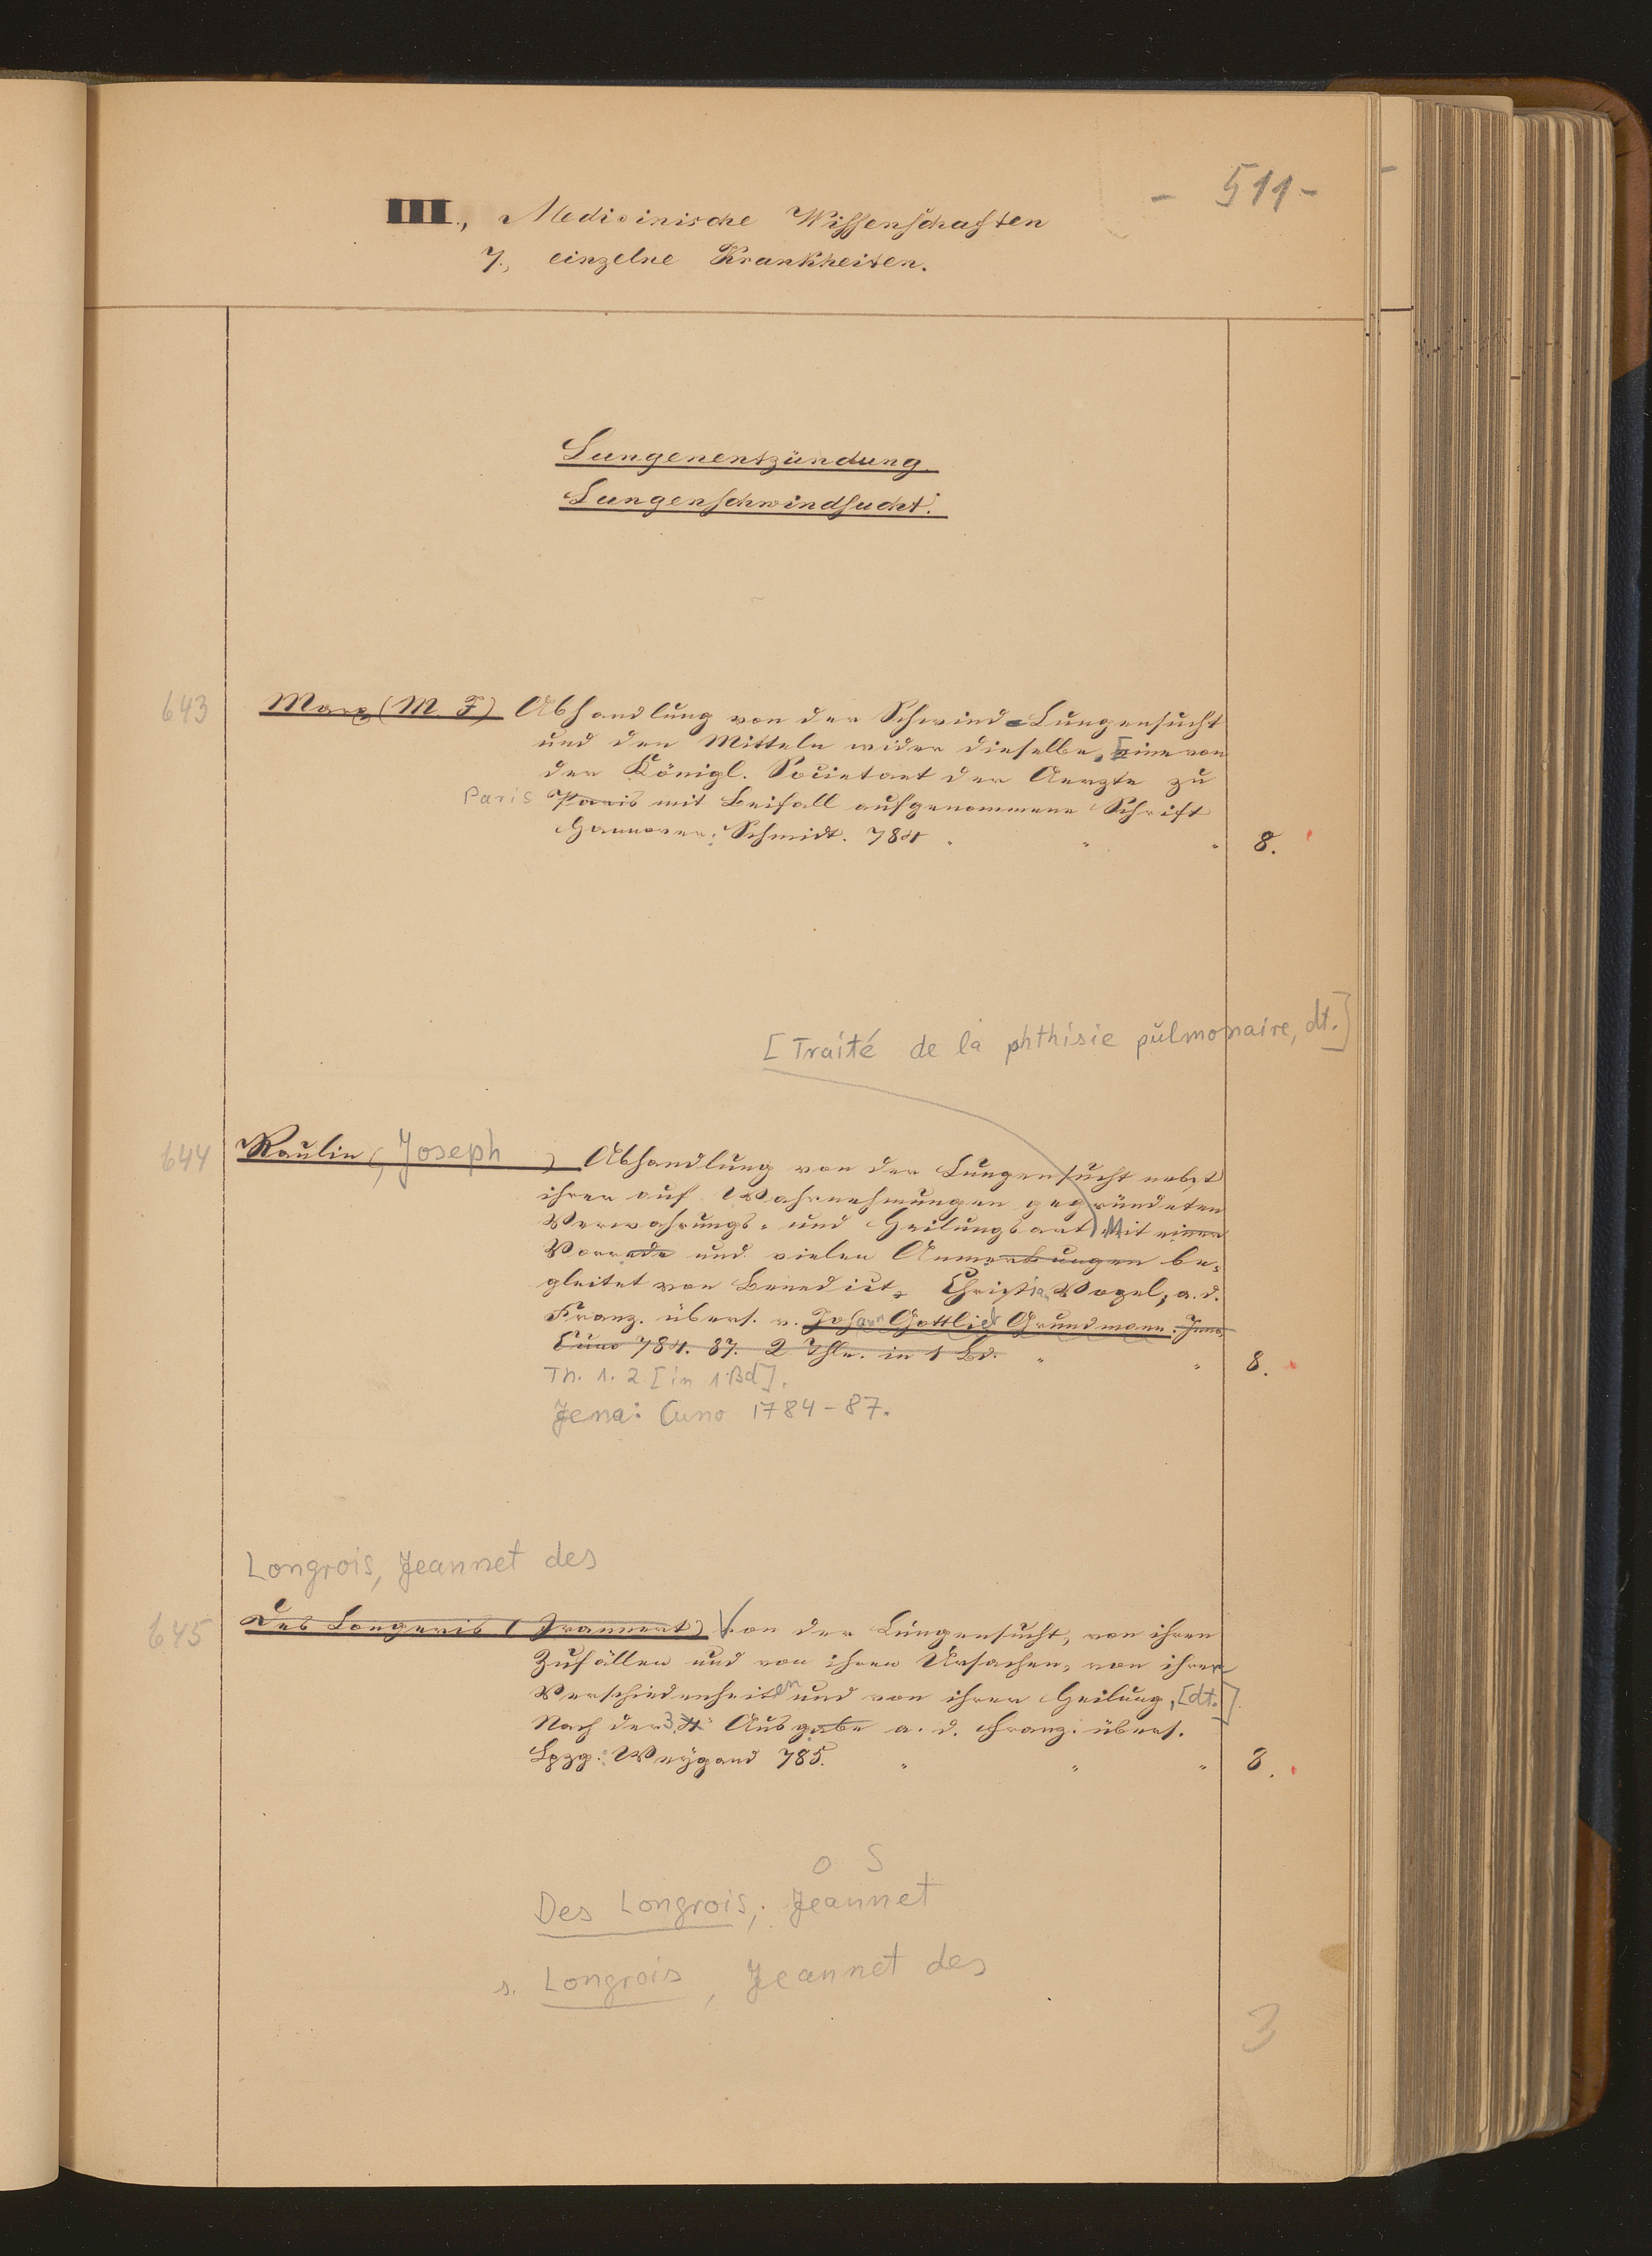 - 511 -
III., Medicinische Wissenschaften
7., einzelne Krankheiten.
Lungenentzündung
Lungenschwindsucht.
643 Marx (M. F) Abhandlung von der Schwind-Lungensucht
und den Mitteln wider dieselbe, [eine von
der Königl. Societaet der Aerzte zu
Paris Paris mit Beifall aufgenommene Schrift
Hannover: Schmidt. 784 " " " 8.
[Traité de la phthisie pulmonaire, dt.]
644 Raulin (, Joseph ) Abhandlung von der Lungensucht nebst
ihrer auf Wahrnehmungen gegründeten
Verwahrungs- und Heilungsart) Mit einer
Vorrede und vielen Anmerkungen be-
gleitet von Benedict. Christian Vogel, a. d.
Franz. übers. v. Johann Gottlieb Grundmann. Jena,
Cuno 784. 87. 2 Thle. in 1 Bd. " " 8.
Th. 1. 2 [in 1 Bd].
Jena: Cuno 1784-87.
Longrois, Jeannet des
645 Des Longeris ( Jrannert) Von der Lungensucht, von ihren
Zufällen und von ihren Ursachen, von ihrer
Verschiedenheiten und von ihrer Heilung, [dt.]
Nach der 3. 4. Ausgabe a. d. Franz. übers.
Lpzg: Weygand 785. " " " 8.
o S
Des Longrois, Jeannet
s. Longrois, Jeannet des
3